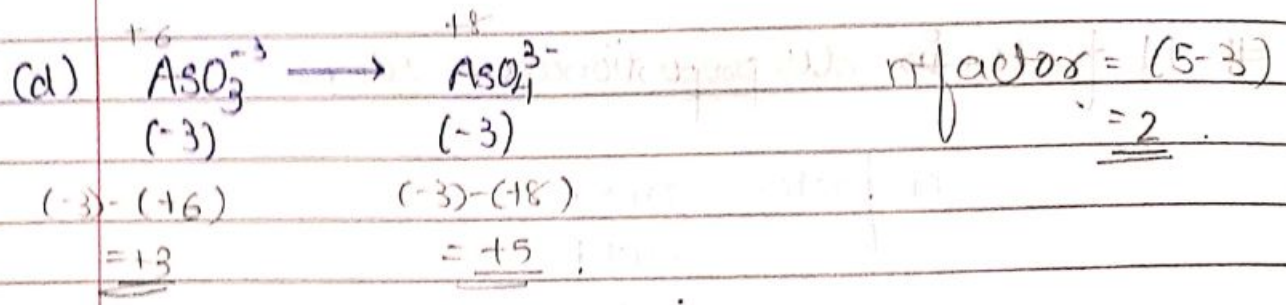 +6 +8
(d) AsO₃⁻³ ⟶ AsO₄³⁻ n-factor = (5-3)
(-3) (-3) = 2 .
(-3) - (+6) (-3)-(+8)
= +3 = +5 .